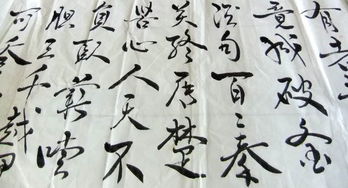 有志者
竟成破釜
沉舟百二秦
关终属楚
苦心人天不
負臥薪嚐
胆三千越甲
可吞